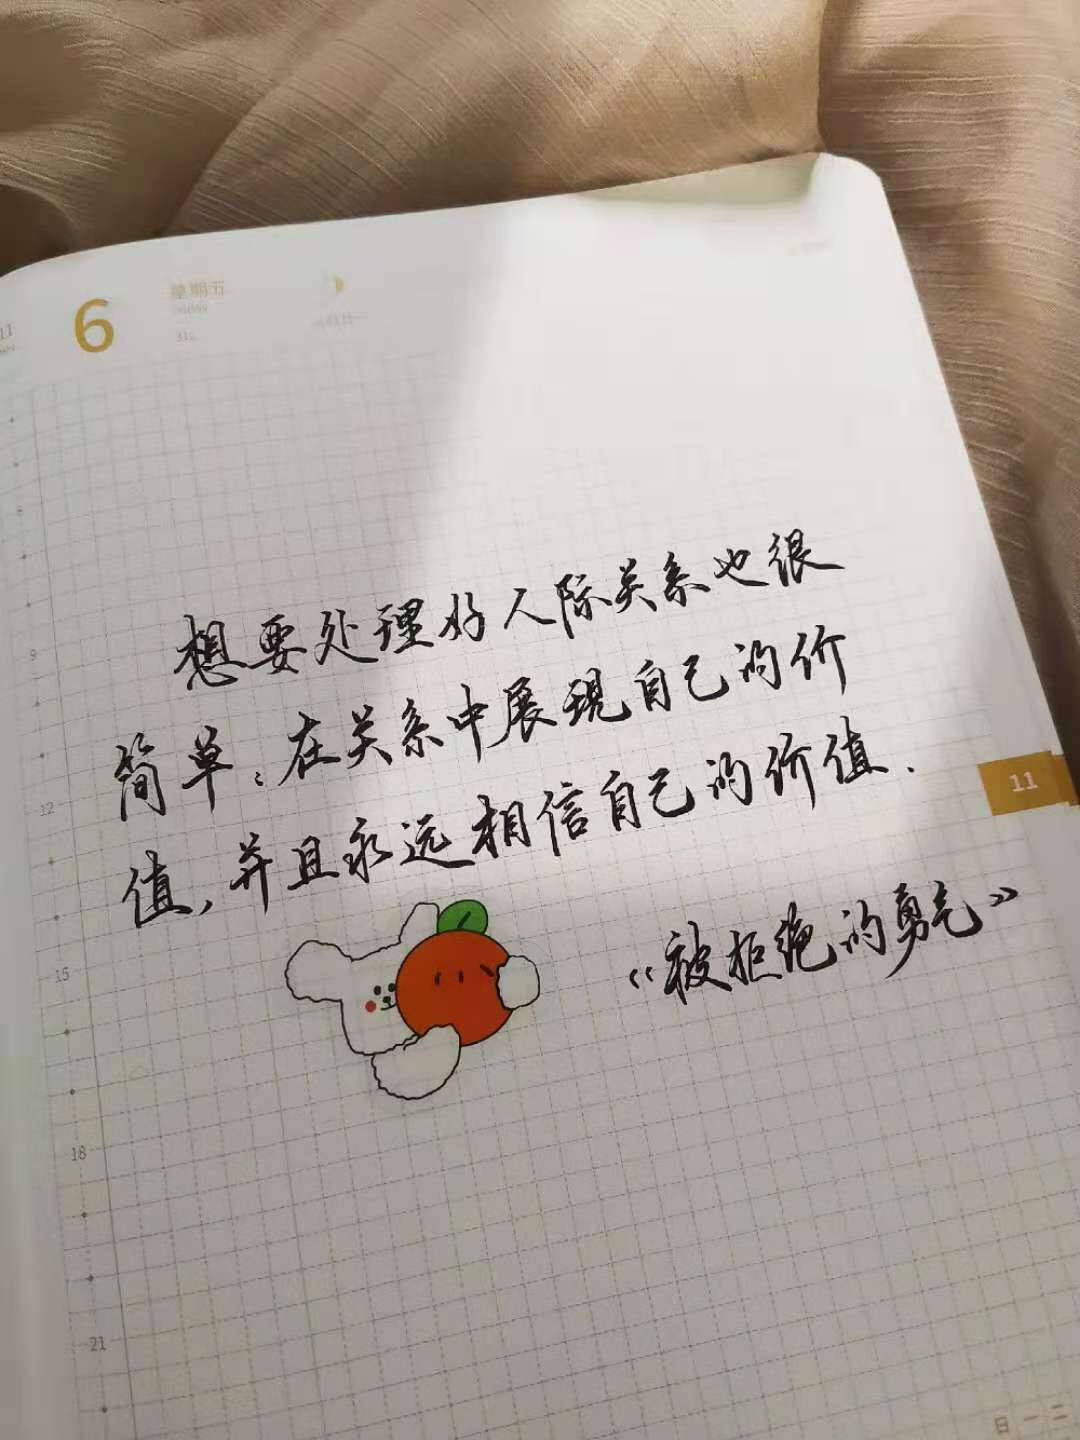 11
6
星期五
想要处理好人际关系也很
简单:在关系中展现自己的价
值,并且永远相信自己的价值.
《被拒绝的勇气》
9
12
15
18
21
11
日 一 二